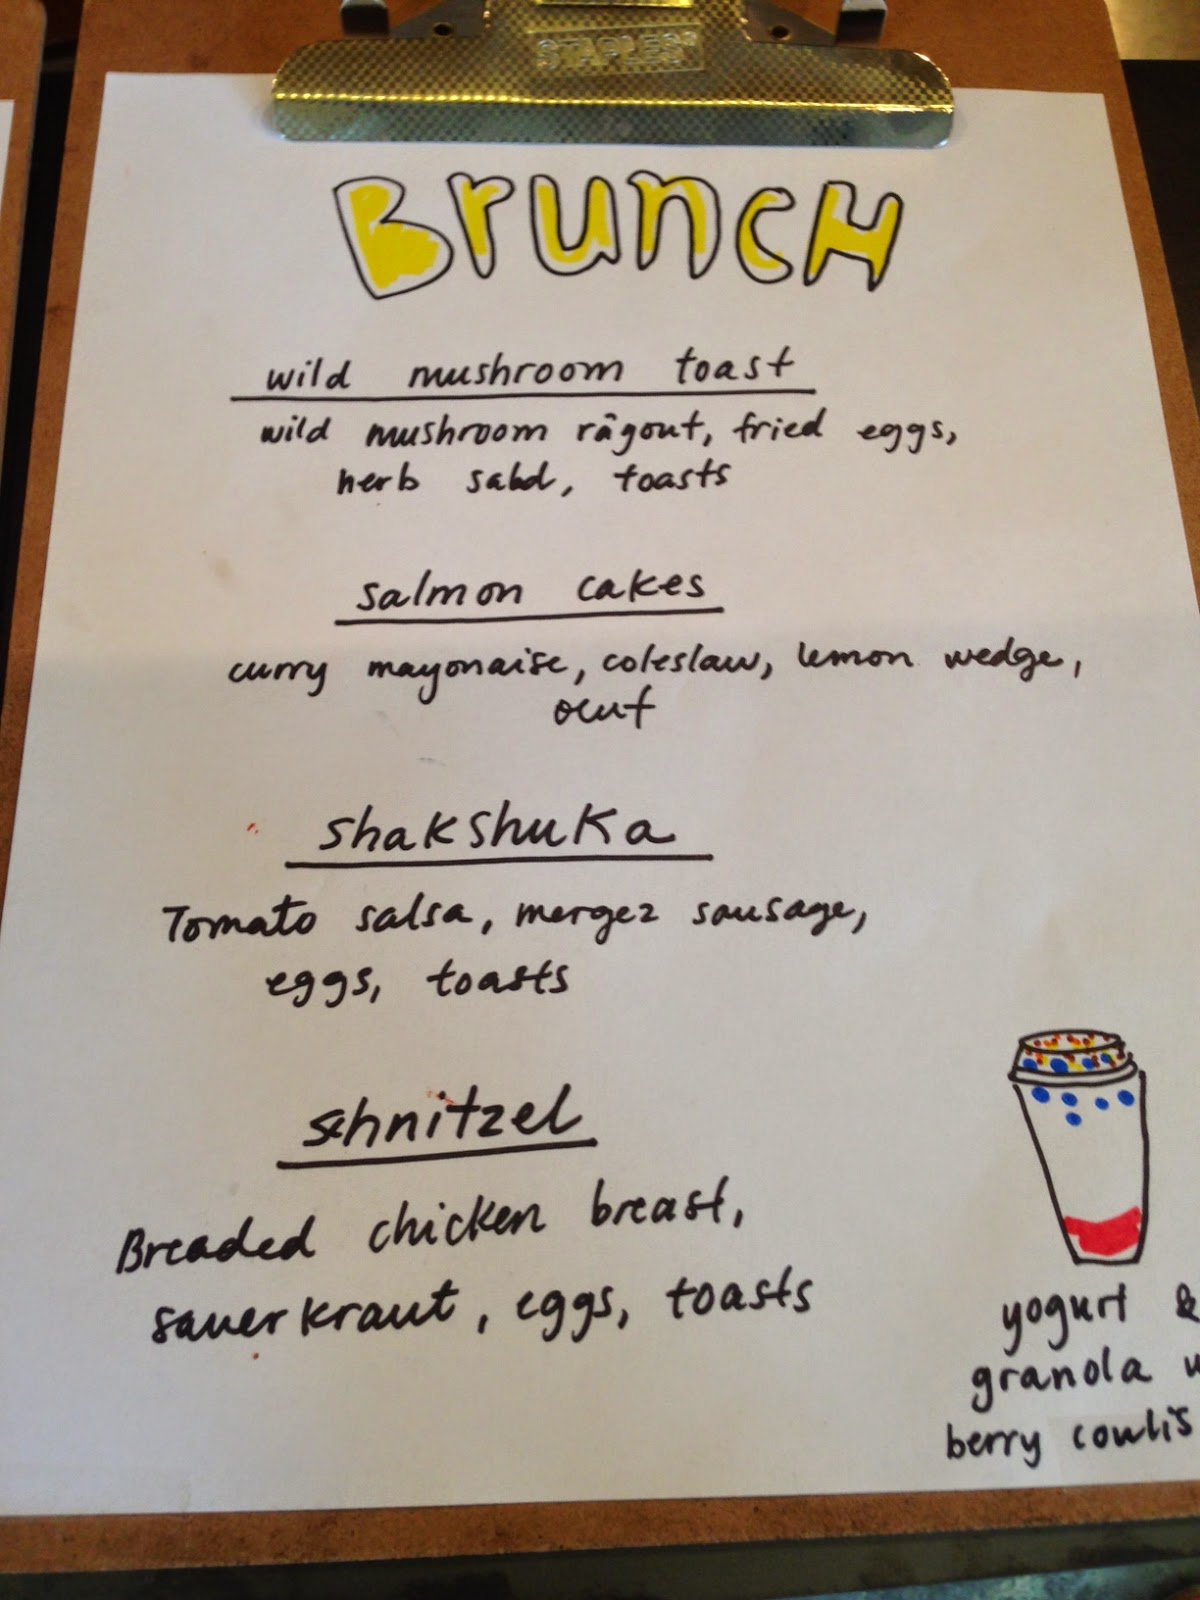 STAPLES
BrunCH
wild mushroom toast
wild mushroom râgout, fried eggs,
herb salad, toasts
salmon cakes
curry mayonaise, coleslaw, lemon wedge,
oeuf
shakshuka
Tomato salsa, mergez sausage,
eggs, toasts
schnitzel
Breaded chicken breast,
sauerkraut, eggs, toasts
yogurt &
granola w
berry coulis